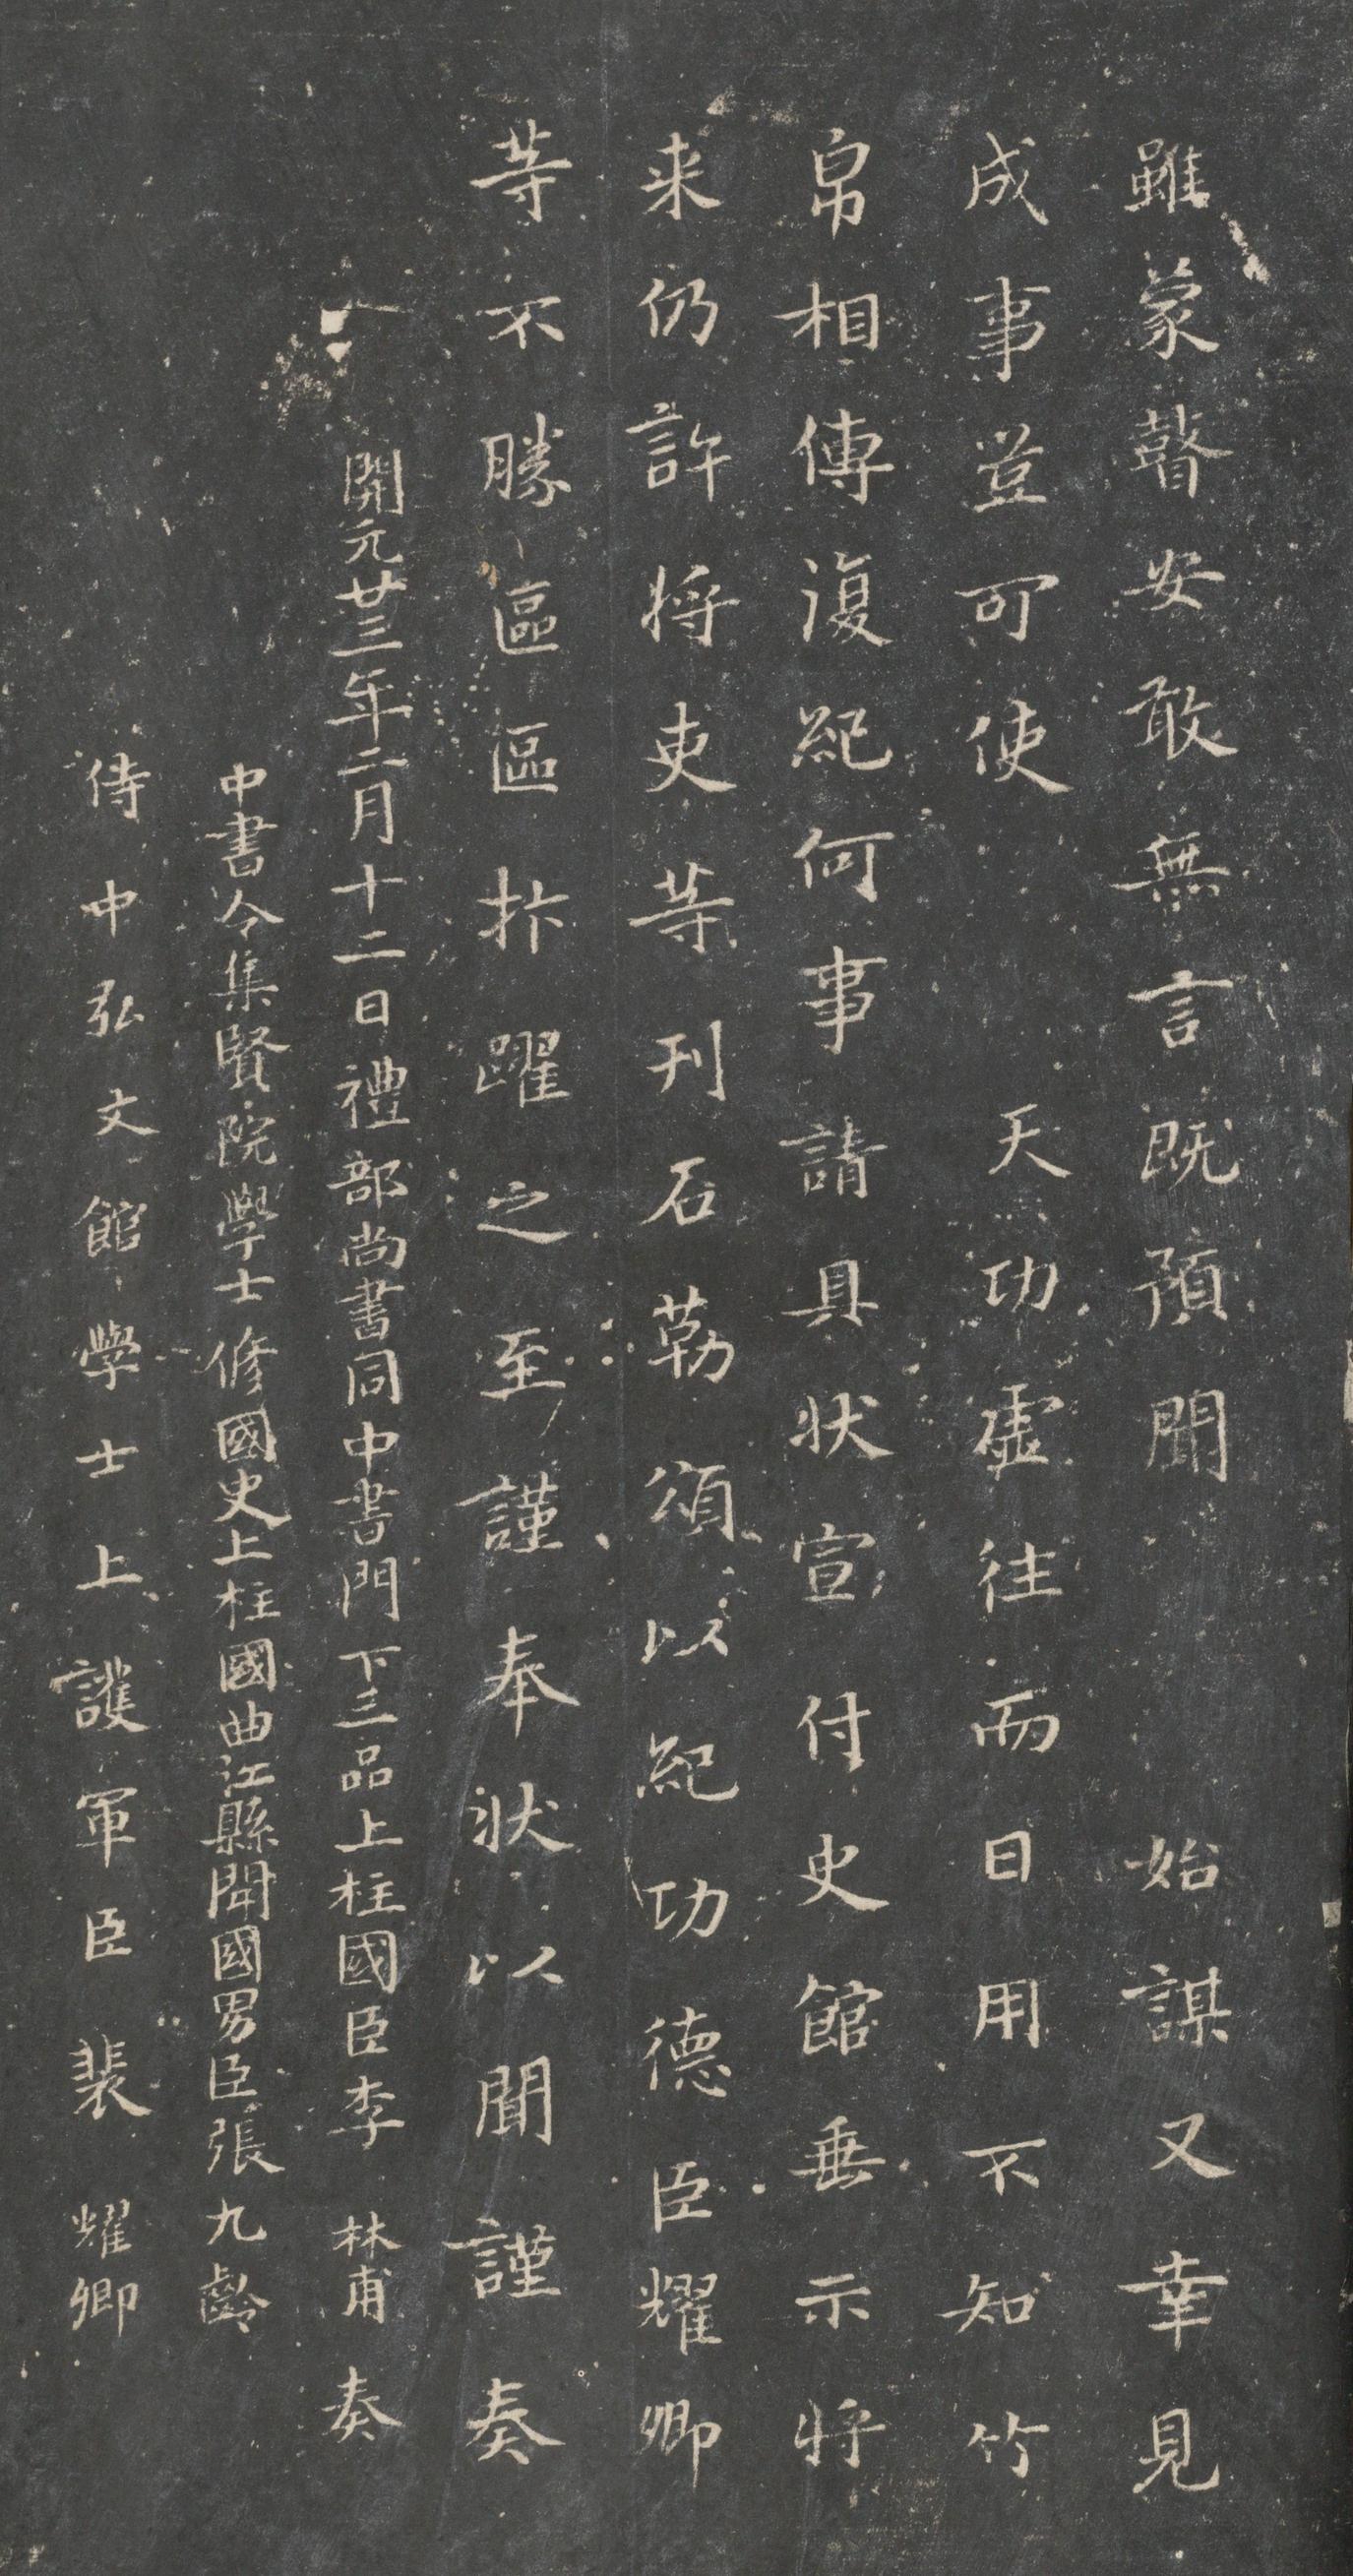 雖蒙瞽安敢無言既預聞始謀又幸見
成事豈可使天功虛往而日用不知竹
帛相傳復紀何事請具狀宣付史館垂示將
来仍許將吏等刊石勒頌以紀功德臣耀卿
等不勝區區抃躍之至謹奉狀以聞謹奏
開元廿三年二月十二日禮部尚書同中書門下三品上柱國臣李林甫奏
中書令集賢院學士修國史上柱國曲江縣開國男臣張九齡
侍中弘文館學士上護軍臣裴耀卿